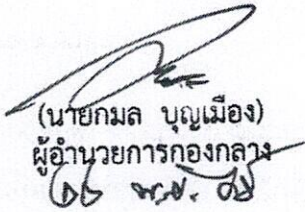 (นายกมล บุญเมือง)
ผู้อำนวยการกองกลาง
พ.ย.